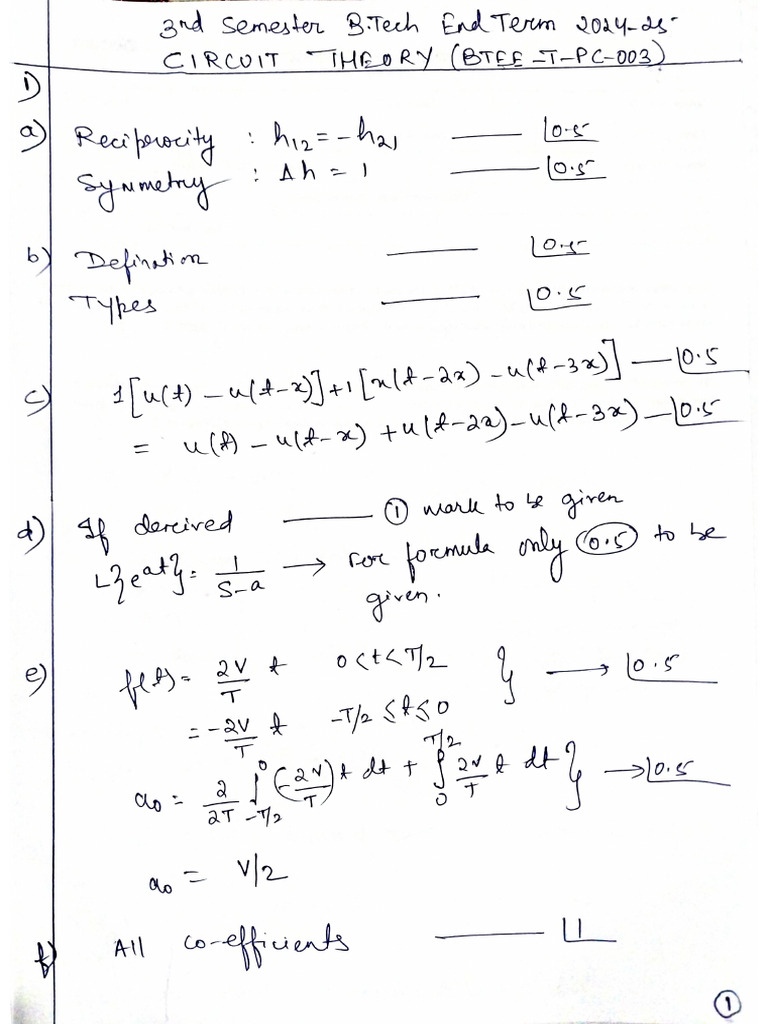 3rd Semester B.Tech End Term 2024-25
CIRCUIT THEORY (BTEE-T-PC-003)
1)
a) Reciprocity : h12 = -h21 —— 0.5
Symmetry : Δh = 1 —— 0.5
b) Defination —— 0.5
Types —— 0.5
c) 1[u(t) - u(t-x)] + 1[u(t-2x) - u(t-3x)] — 0.5
= u(t) - u(t-x) + u(t-2x) - u(t-3x) — 0.5
d) If dercived —— ① mark to be given
L{e^at} = 1/(S-a) → For formula only 0.5 to be
given.
e) f(t) = 2V/T t 0<t<T/2 } → 0.5
= -2V/T t -T/2 ≤ t ≤ 0
a0 = 2/2T ∫_{-T/2}^{0} (-2V/T) t dt + ∫_{0}^{T/2} 2V/T t dt } → 0.5
a0 = V/2
f) All co-efficients —— 1
①